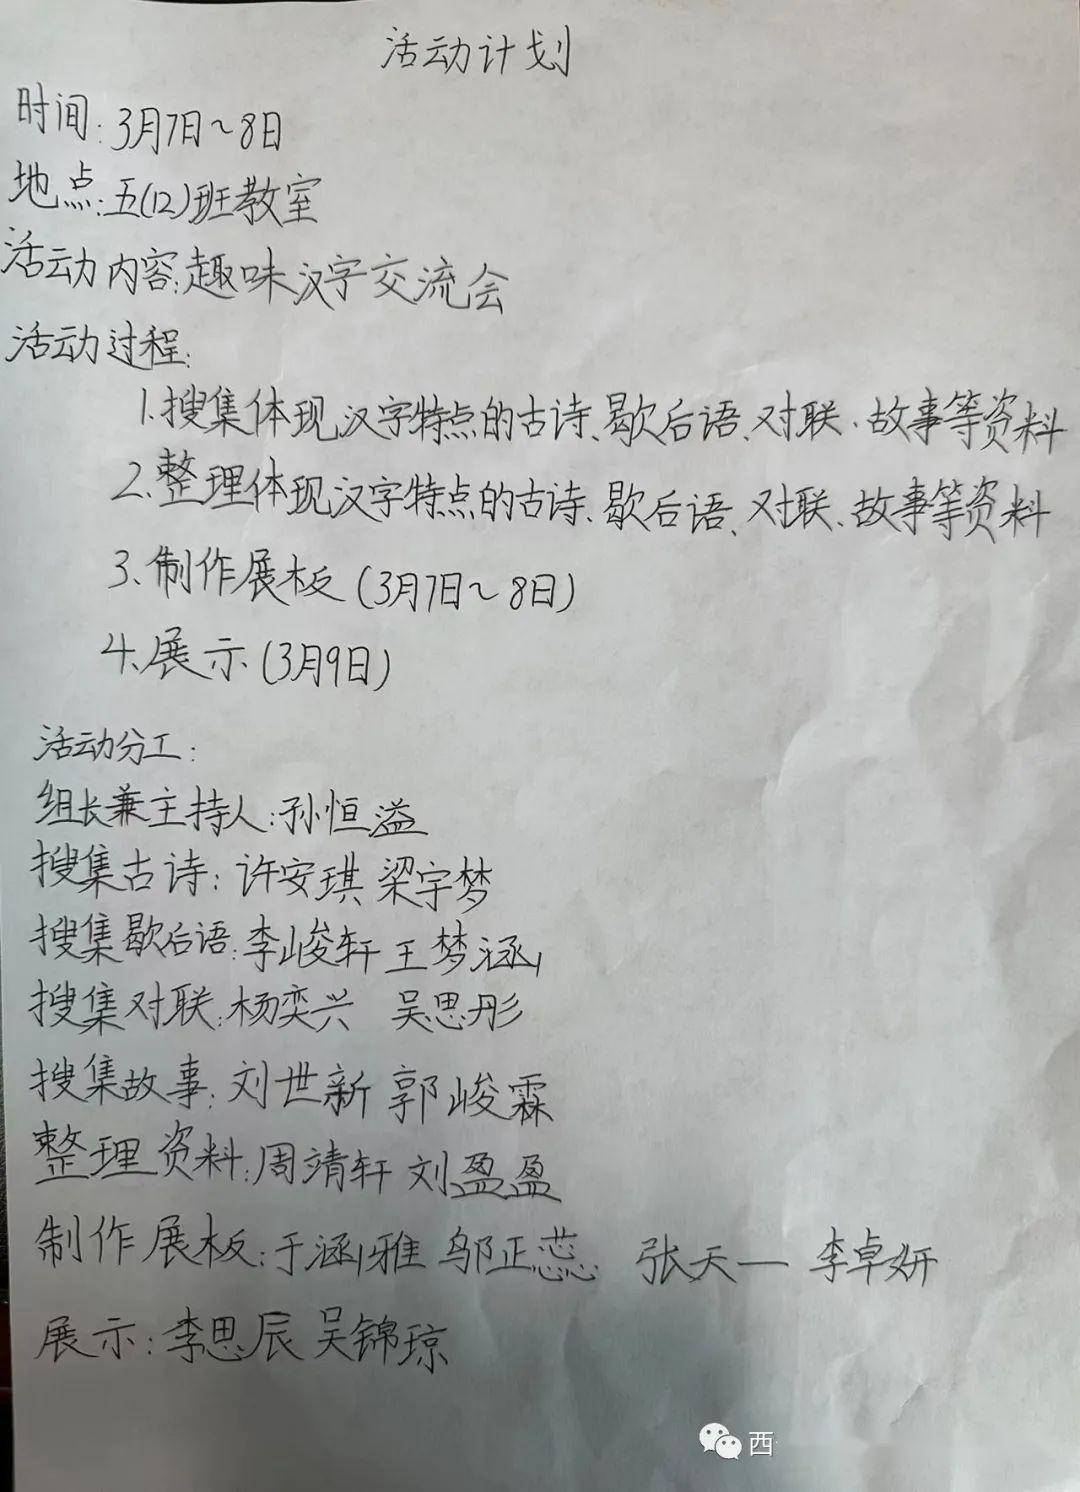 活动计划
时间:3月7日~8日
地点:五(12)班教室
活动内容:趣味汉字交流会
活动过程:
1.搜集体现汉字特点的古诗、歇后语、对联、故事等资料
2.整理体现汉字特点的古诗、歇后语、对联、故事等资料
3.制作展板(3月7日~8日)
4.展示(3月9日)
活动分工:
组长兼主持人:孙恒溢
搜集古诗:许安琪 梁宇梦
搜集歇后语:李峻轩 王梦涵
搜集对联:杨奕兴 吴思彤
搜集故事:刘世新 郭峻霖
整理资料:周靖轩 刘盈盈
制作展板:于涵雅 邬正蕊 张天一 李卓妍
展示:李思辰 吴锦琼
西